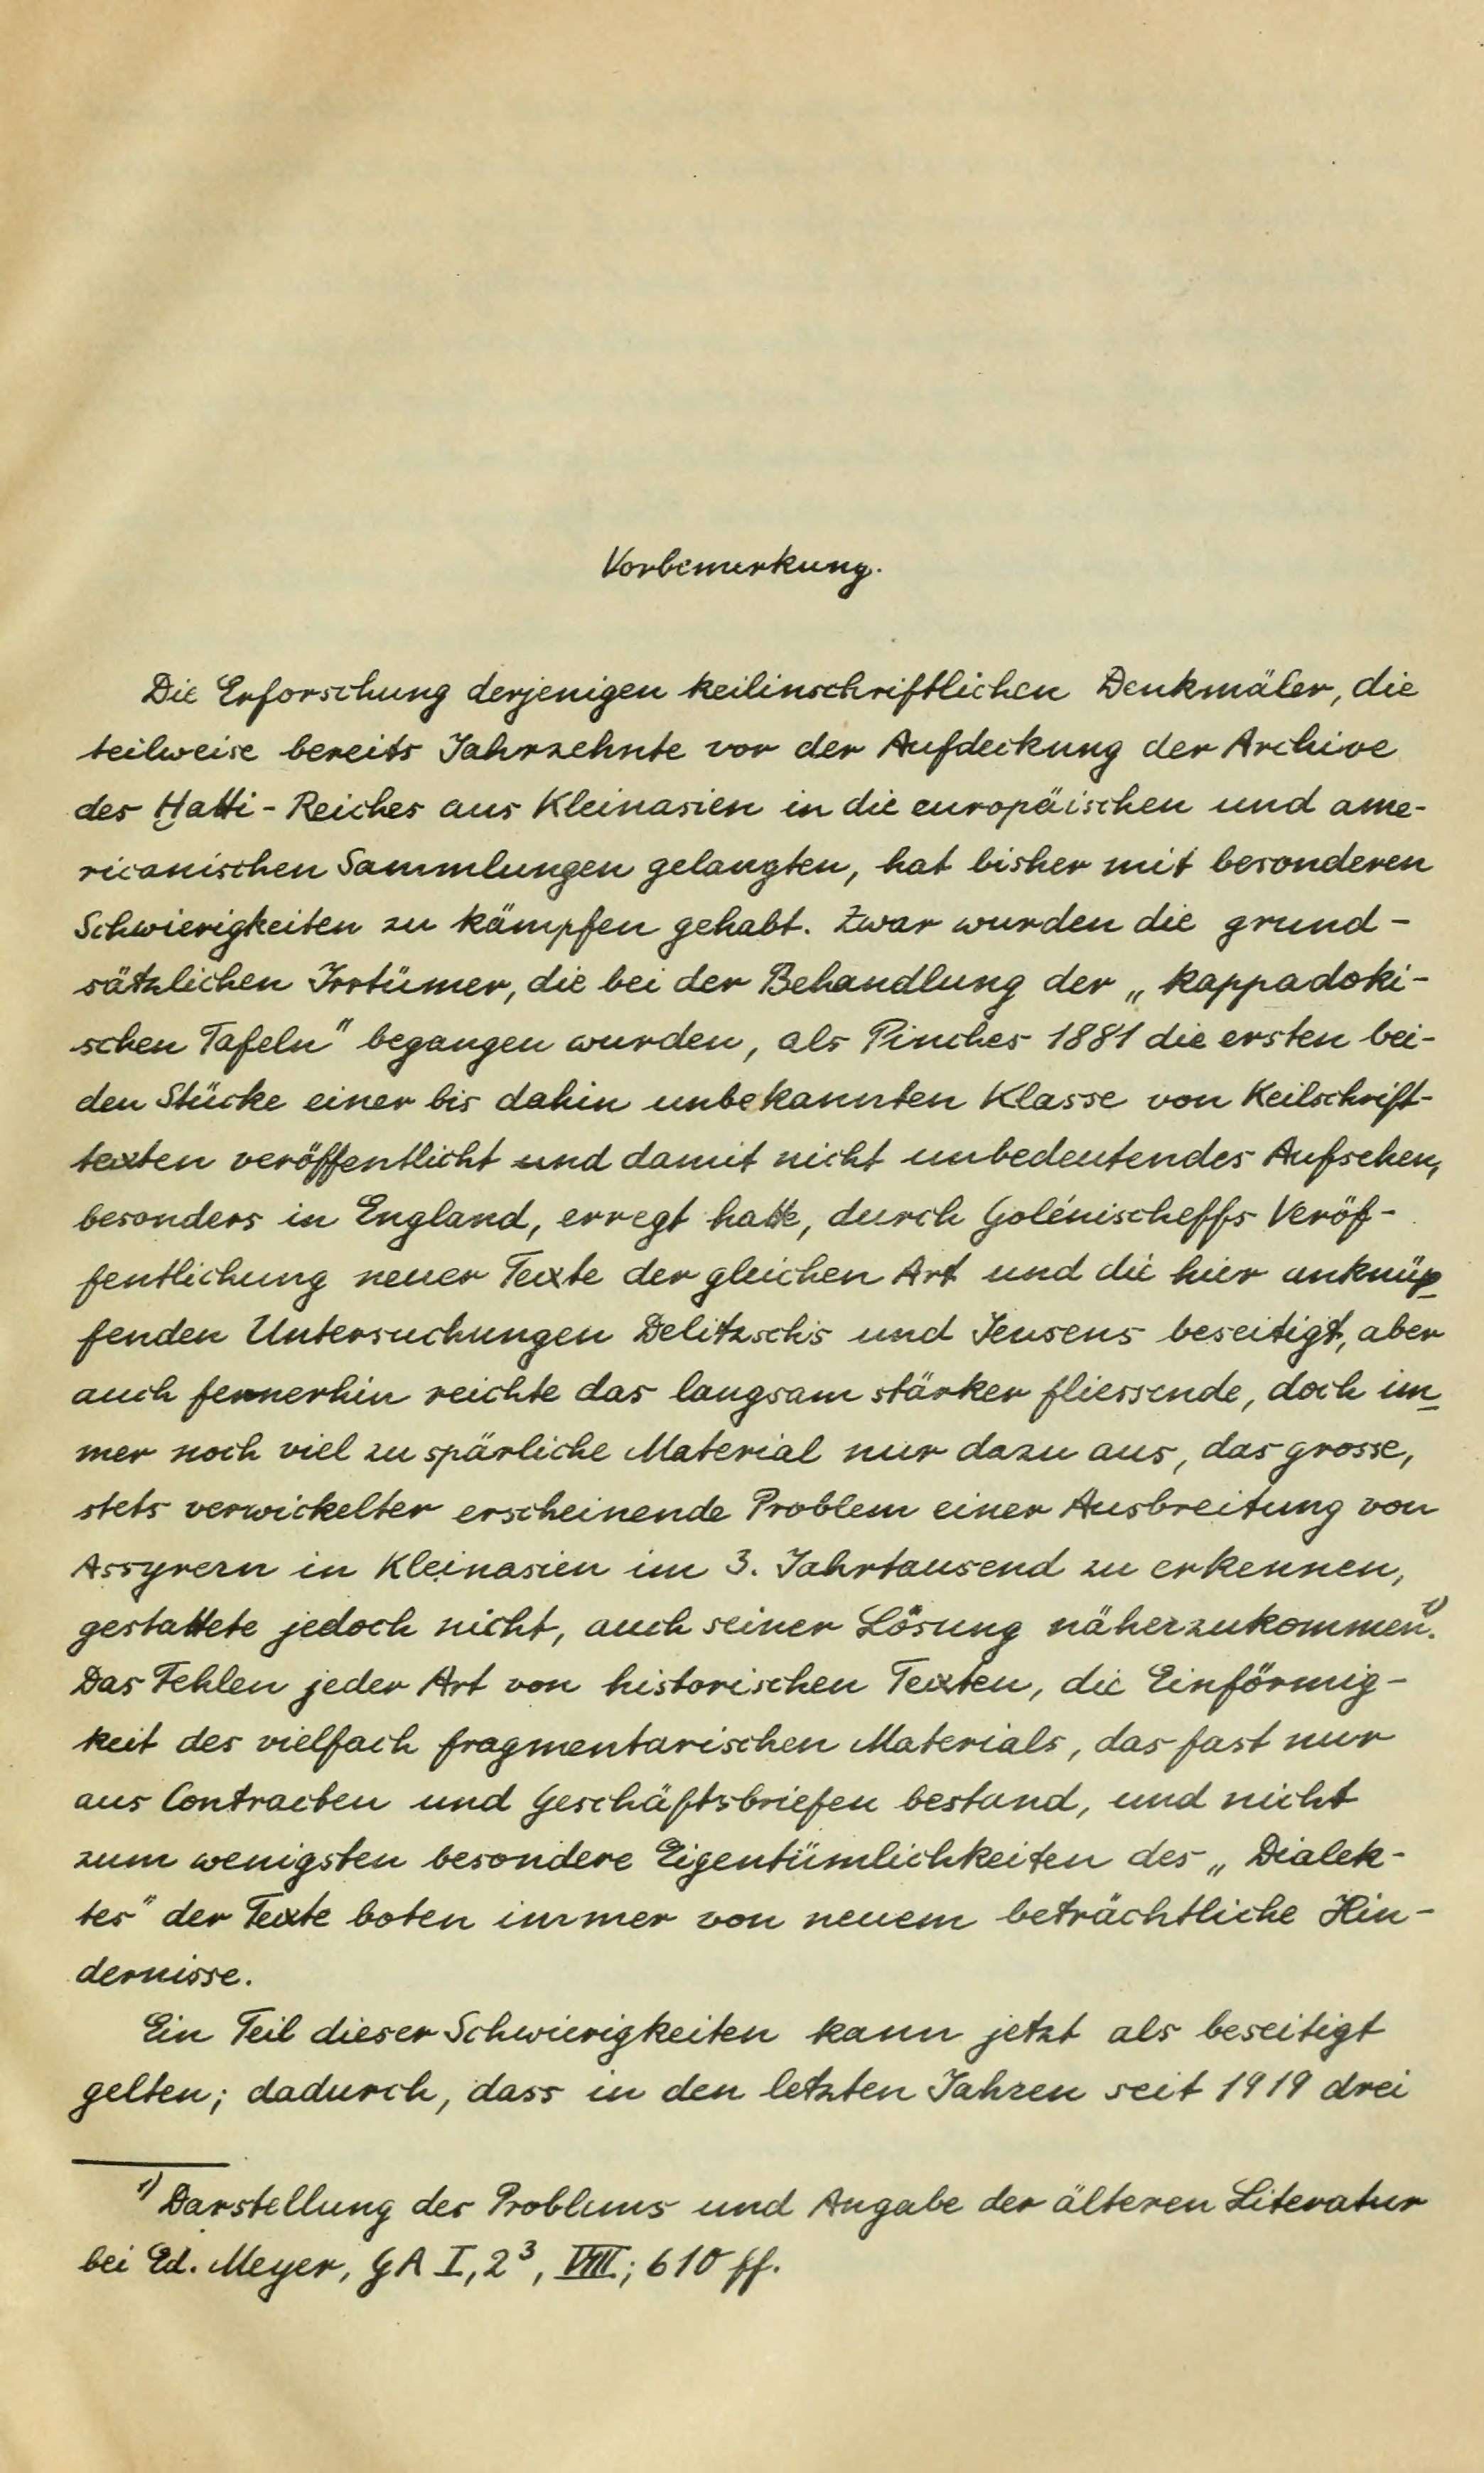 Vorbemerkung.
Die Erforschung derjenigen keilinschriftlichen Denkmäler, die
teilweise bereits Jahrzehnte vor der Aufdeckung der Archive
des Ḫatti-Reiches aus Kleinasien in die europäischen und ame-
ricanischen Sammlungen gelangten, hat bisher mit besonderen
Schwierigkeiten zu kämpfen gehabt. Zwar wurden die grund-
sätzlichen Irrtümer, die bei der Behandlung der „kappadoki-
schen Tafeln" begangen wurden, als Pinches 1881 die ersten bei-
den Stücke einer bis dahin unbekannten Klasse von Keilschrift-
texten veröffentlicht und damit nicht unbedeutendes Aufsehen,
besonders in England, erregt hatte, durch Golénischeffs Veröf-
fentlichung neuer Texte der gleichen Art und die hier anknüp
fenden Untersuchungen Delitzschs und Jensens beseitigt, aber
auch fernerhin reichte das langsam stärker fliessende, doch im
mer noch viel zu spärliche Material nur dazu aus, das grosse,
stets verwickelter erscheinende Problem einer Ausbreitung von
Assyrern in Kleinasien im 3. Jahrtausend zu erkennen,
gestattete jedoch nicht, auch seiner Lösung näherzukommen¹⁾.
Das Fehlen jeder Art von historischen Texten, die Einförmig-
keit des vielfach fragmentarischen Materials, das fast nur
aus Contracten und Geschäftsbriefen bestand, und nicht
zum wenigsten besondere Eigentümlichkeiten des „Dialek-
tes" der Texte boten immer von neuem beträchtliche Hin-
dernisse.
Ein Teil dieser Schwierigkeiten kann jetzt als beseitigt
gelten; dadurch, dass in den letzten Jahren seit 1919 drei
¹⁾ Darstellung des Problems und Angabe der älteren Literatur
bei Ed. Meyer, GA I, 2³, VIII; 610 ff.